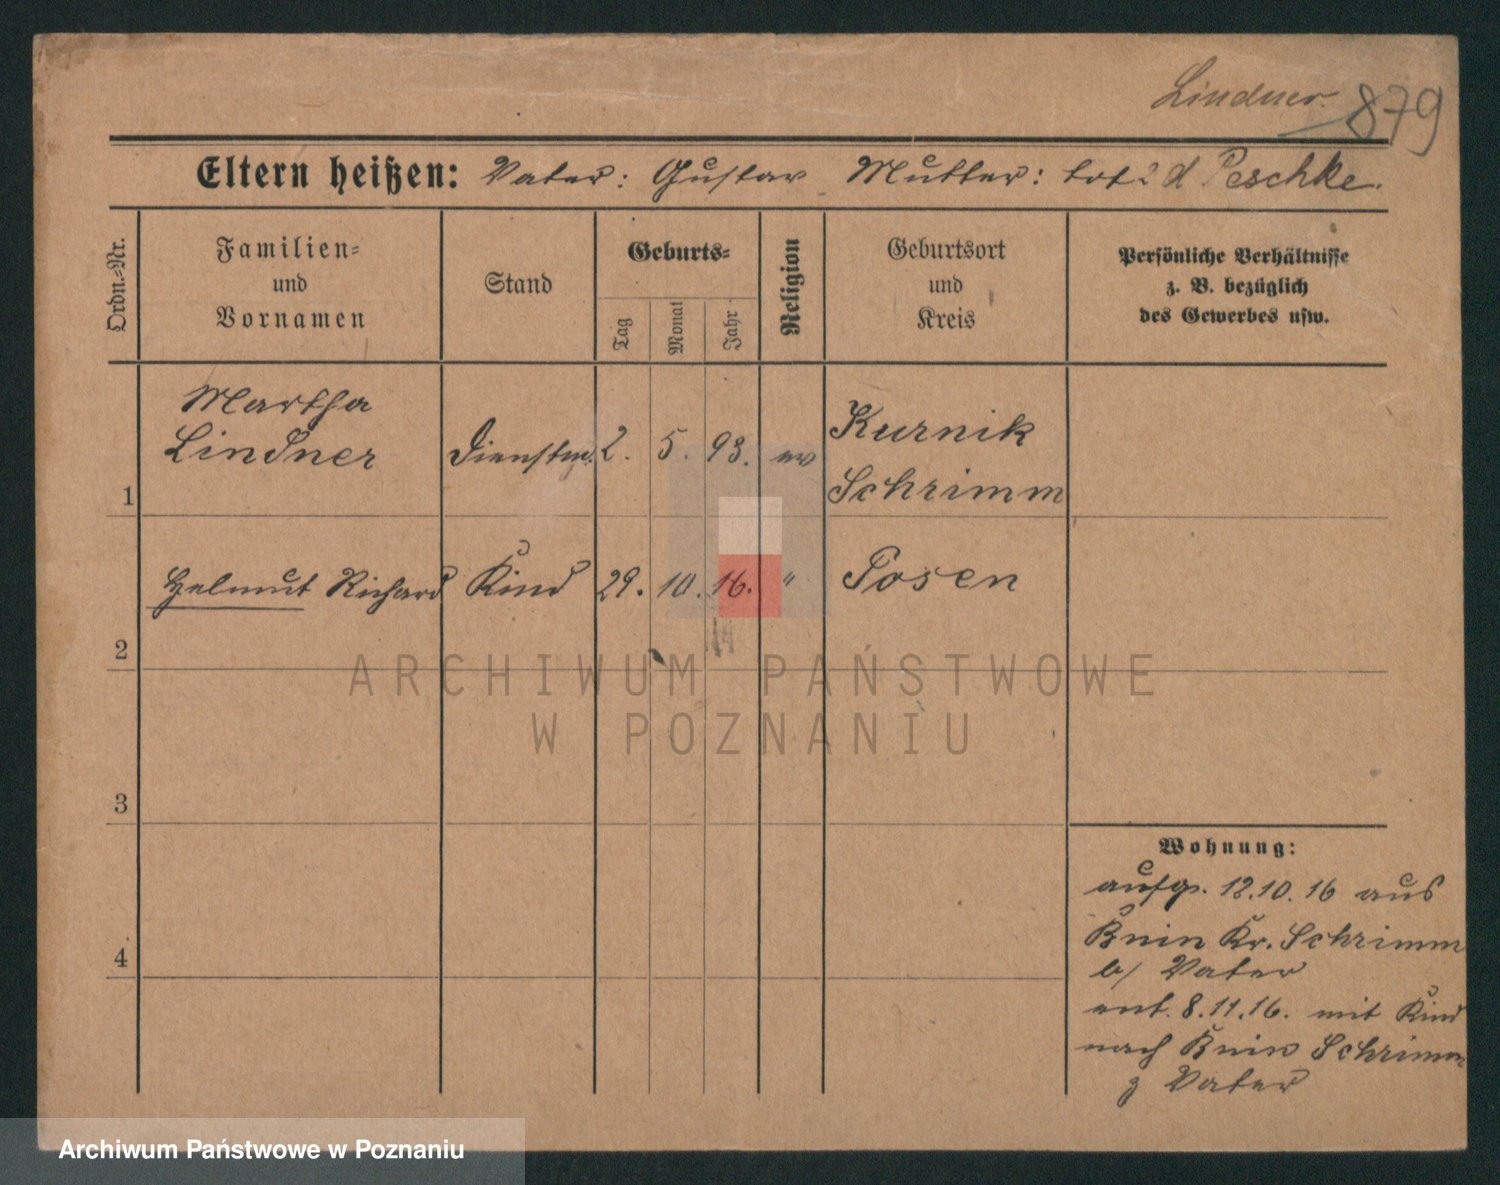 Lindner. 879
Eltern heißen: Vater: Gustav Mutter: tot d Peschke.
Ordn.-Nr.
Familien-
und
Vornamen
Stand
Geburts-
Tag
Monat
Jahr
Religion
Geburtsort
und
Kreis
Persönliche Verhältnisse
z. B. bezüglich
des Gewerbes usw.
Martha
Lindner
Dienstm. 2. 5. 93. ev
Kurnik
Schrimm
1
Helmut Richard Kind 29. 10. 16. " Posen
2
ARCHIWUM PAŃSTWOWE
W POZNANIU
3
Wohnung:
aufg. 12.10.16 aus
Bnin Kr. Schrimm
b/ Vater
4
ent. 8.11.16. mit Kind
nach Bnin Schrimm
z Vater
Archiwum Państwowe w Poznaniu